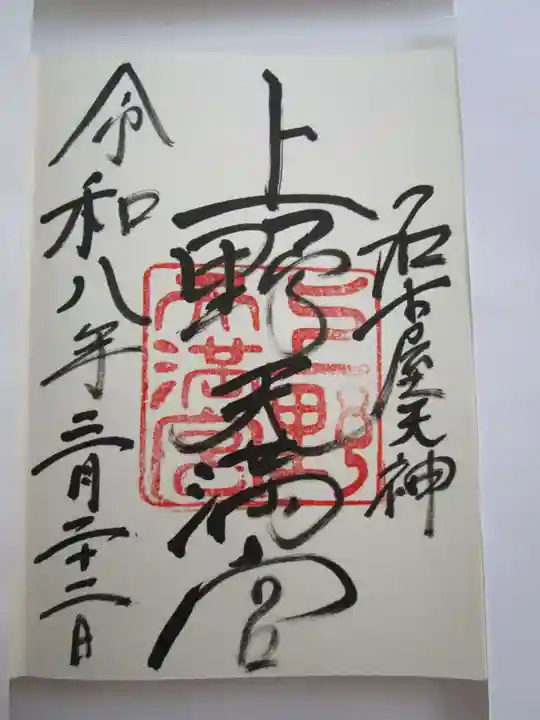 名古屋天神
上野天満宮
上野
天満宮
令和八年三月二十二日